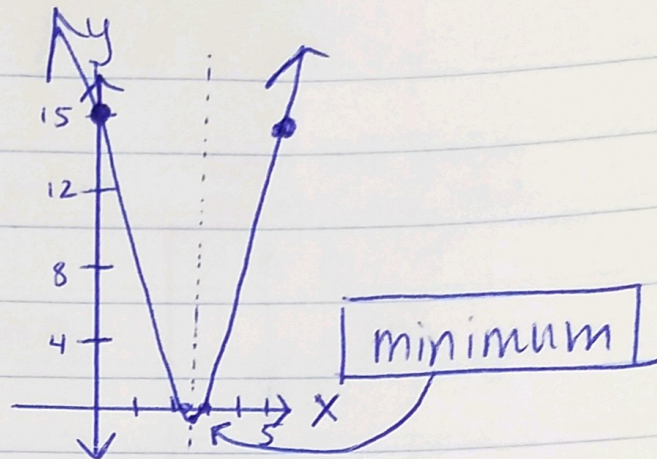 y
15
12
8
4
minimum
5
X